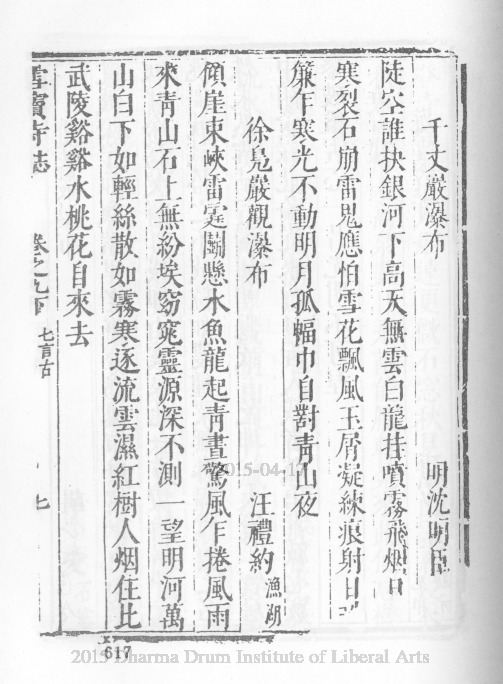 千丈巖瀑布 明沈明臣
陡空誰抉銀河下高天無雲白龍挂噴霧飛烟日
寒裂石崩雷鬼應怕雪花飄風玉屑凝練痕射日
簾乍寒光不動明月孤幅巾自對青山夜
徐鳧巖觀瀑布 汪禮約 漁湖
傾崖東峽雷霆鬬懸水魚龍起青晝驚風乍捲風雨
來青山石上無紛埃窈窕靈源深不測一望明河萬
山白下如輕絲散如霧寒逐流雲濕紅樹人烟住比
武陵谿谿水桃花自來去
雪竇寺誌 卷之九下 七言古 七
2015-04-17
617
2015 Dharma Drum Institute of Liberal Arts